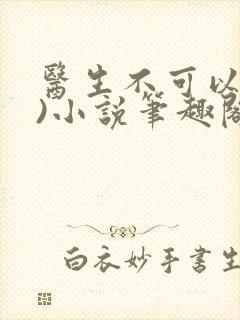 醫生不可以
)小說筆趣閣
白衣妙手書生